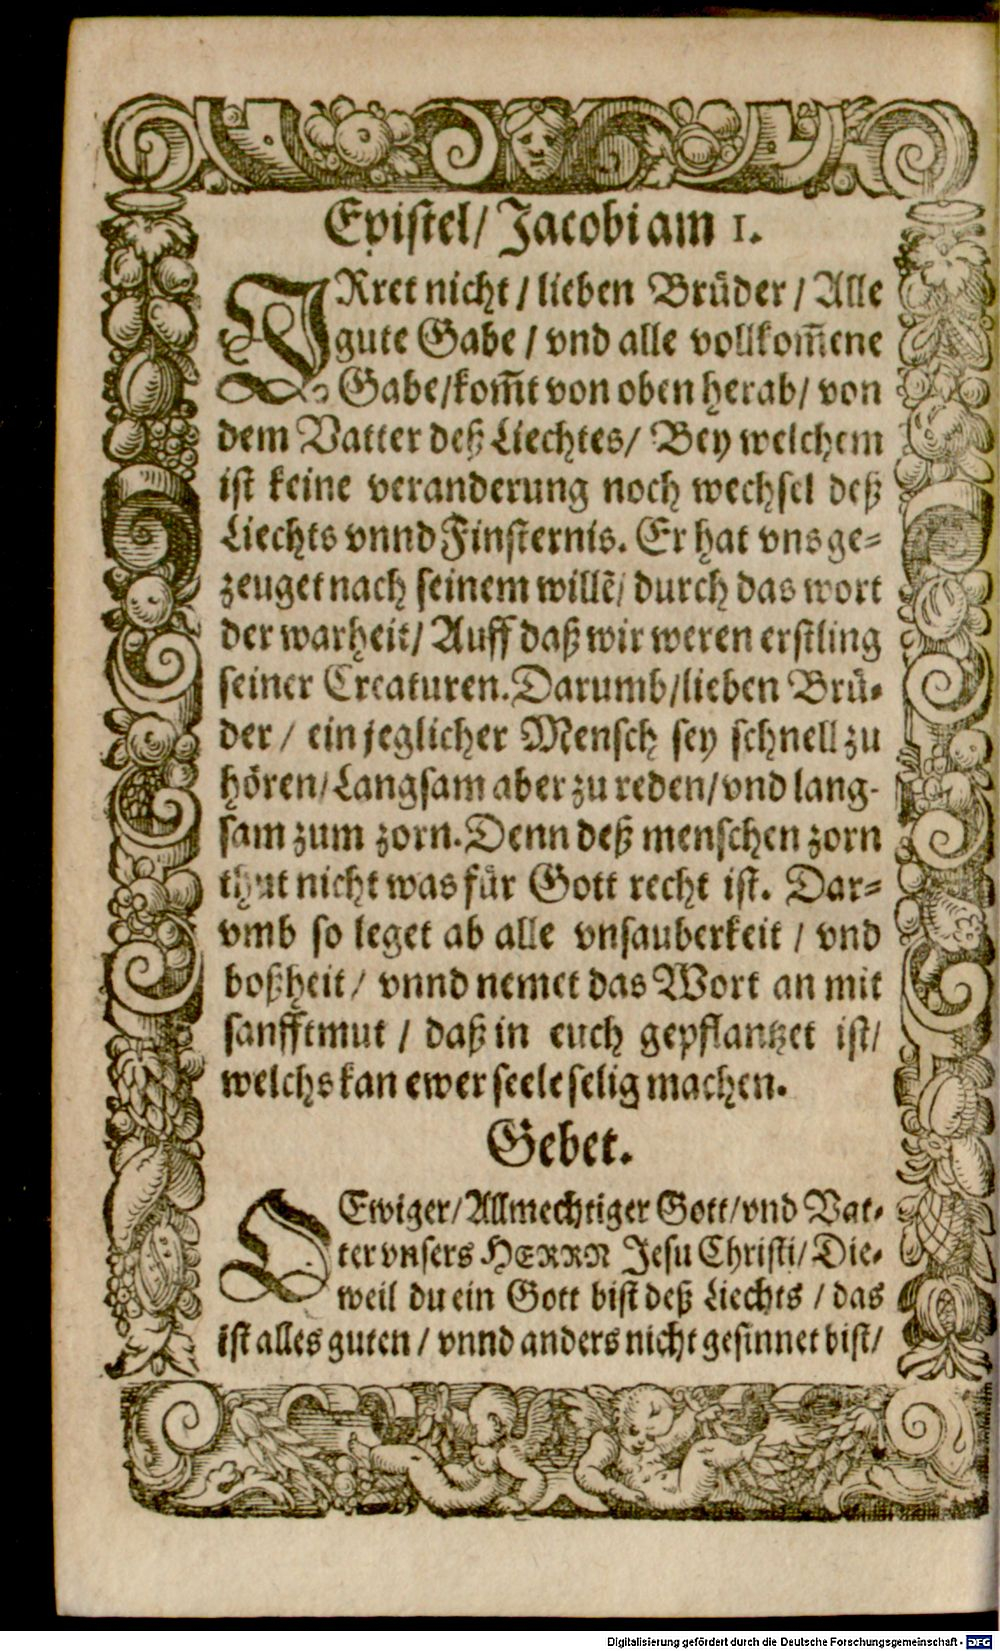 Epistel/ Jacobi am 1.
IRret nicht / lieben Brüder / Alle
gute Gabe / vnd alle vollkom̄ene
Gabe/kom̄t von oben herab/ von
dem Vatter deß Liechtes/ Bey welchem
ist keine veranderung noch wechsel deß
Liechts vnnd Finsternis. Er hat vns ge-
zeuget nach seinem willē/ durch das wort
der warheit/ Auff daß wir weren erstling
seiner Creaturen. Darumb/lieben Brü-
der / ein jeglicher Mensch sey schnell zu
hören/Langsam aber zu reden/vnd lang-
sam zum zorn. Denn deß menschen zorn
thut nicht was für Gott recht ist. Dar-
vmb so leget ab alle vnsauberkeit / vnd
boßheit / vnnd nemet das Wort an mit
sanfftmut / daß in euch gepflantzet ist/
welchs kan ewer seele selig machen.
Gebet.
O Ewiger/Allmechtiger Gott/vnd Vat-
ter vnsers HERRN Jesu Christi/Die-
weil du ein Gott bist deß Liechts / das
ist alles guten / vnnd anders nicht gesinnet bist/
Digitalisierung gefördert durch die Deutsche Forschungsgemeinschaft - DFG